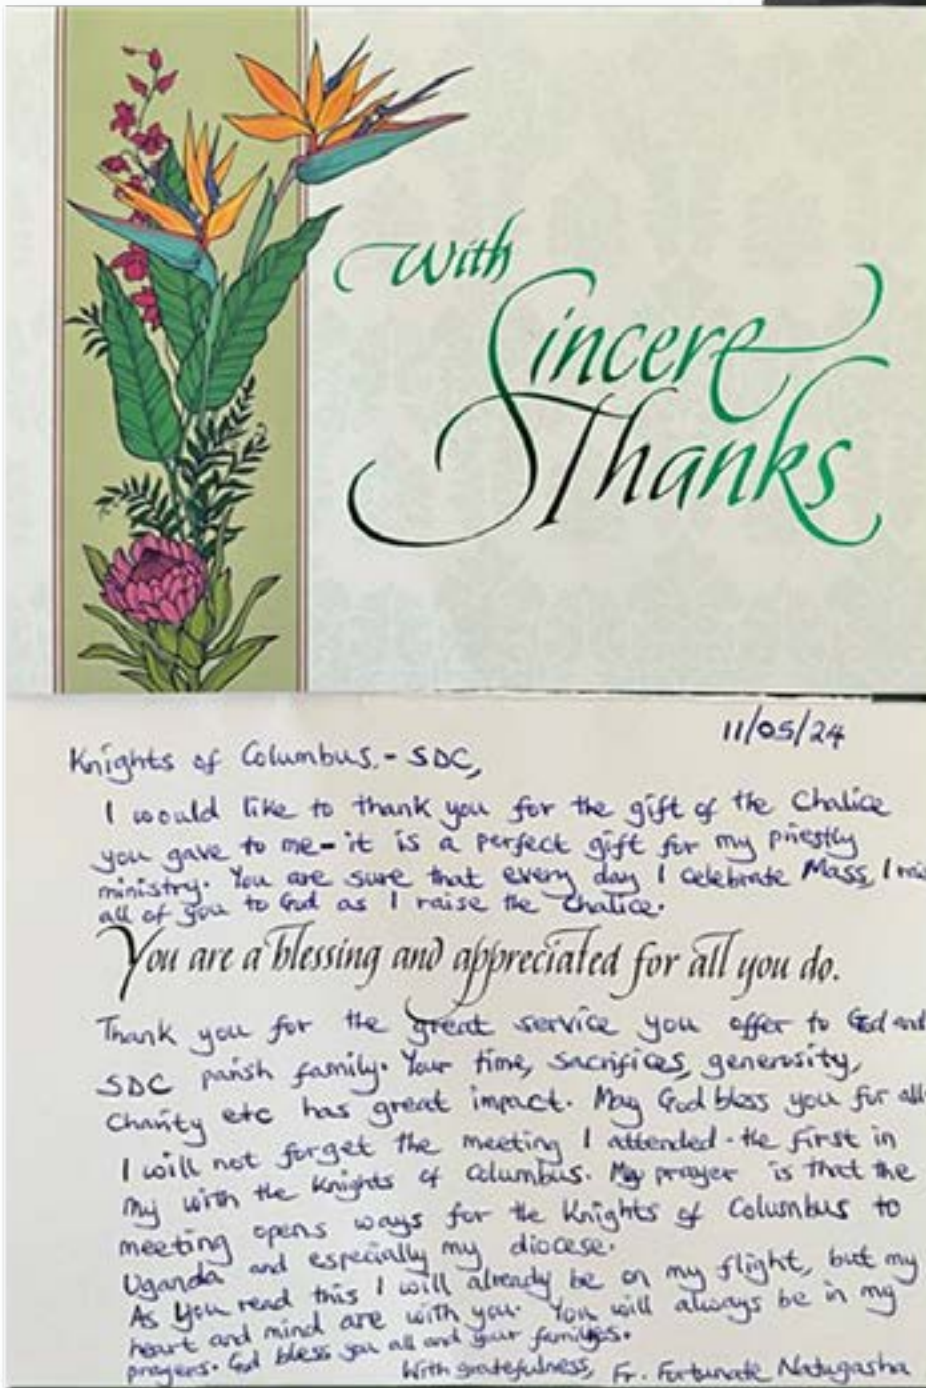 With
Sincere
Thanks
11/05/24
Knights of Columbus. - SDC,
I would like to thank you for the gift of the Chalice
you gave to me - it is a perfect gift for my priestly
ministry. You are sure that every day I celebrate Mass, I rai
all of you to God as I raise the chalice.
You are a blessing and appreciated for all you do.
Thank you for the great service you offer to God and
SDC parish family. Your time, sacrifices, generosity,
Charity etc has great impact. May God bless you for all
I will not forget the meeting I attended - the first in
my with the Knights of Columbus. My prayer is that the
meeting opens ways for the Knights of Columbus to
Uganda and especially my diocese.
As you read this I will already be on my flight, but my
heart and mind are with you. You will always be in my
prayers. God bless you all and your families.
With gratefulness, Fr. Fortunate Natugasha